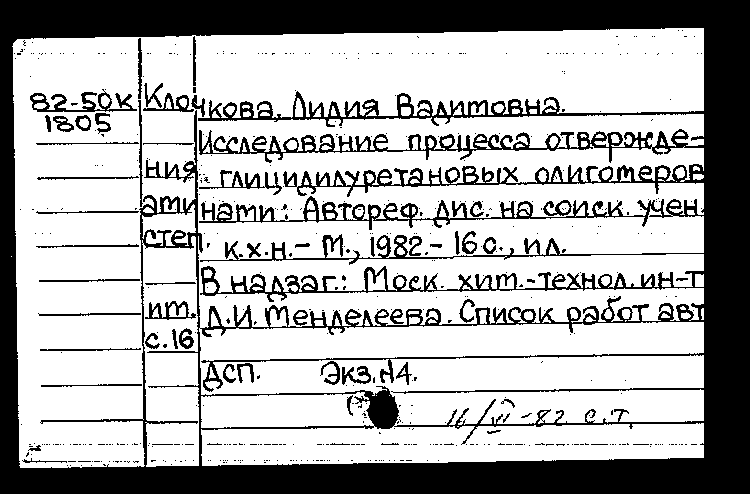 82-50К Клочкова, Лидия Вадимовна.
1805
Исследование процесса отвержде-
ния глицидилуретановых олигомеров
ами нами: Автореф. дис. на соиск. учен.
степ. к.х.н.- М., 1982.- 16 с., ил.
В надзаг.: Моск. хим.-технол. ин-т
им. Д.И. Менделеева. Список работ авт
с.16
ДСП. Экз.№4.
16/VI-82 с.т.